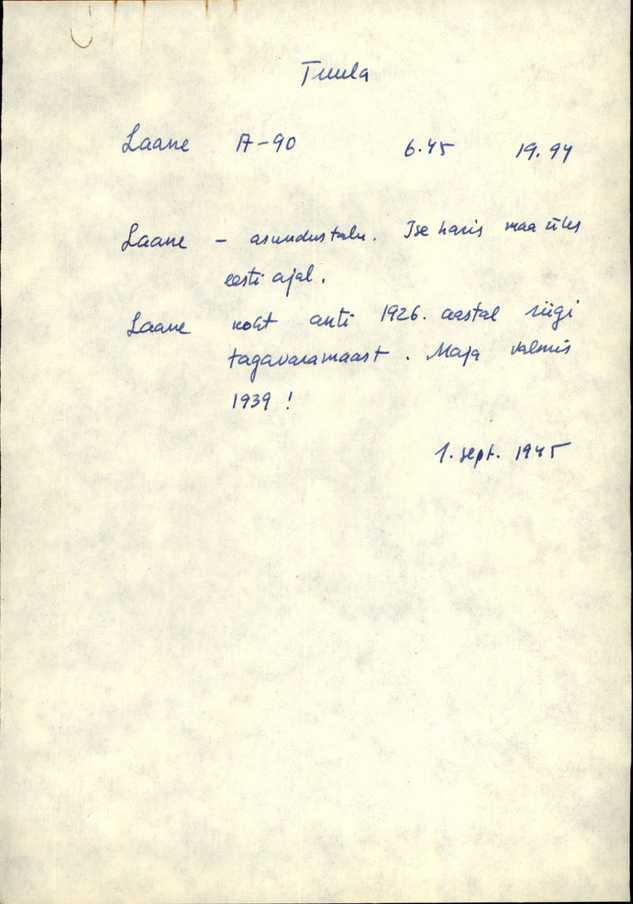 Tuula
Laane A-90 6.45 19.94
Laane - asundustalu. Ise haris maa üles
eesti ajal.
Laane koht anti 1926. aastal riigi
tagavaramaast. Maja valmis
1939!
1. sept. 1945